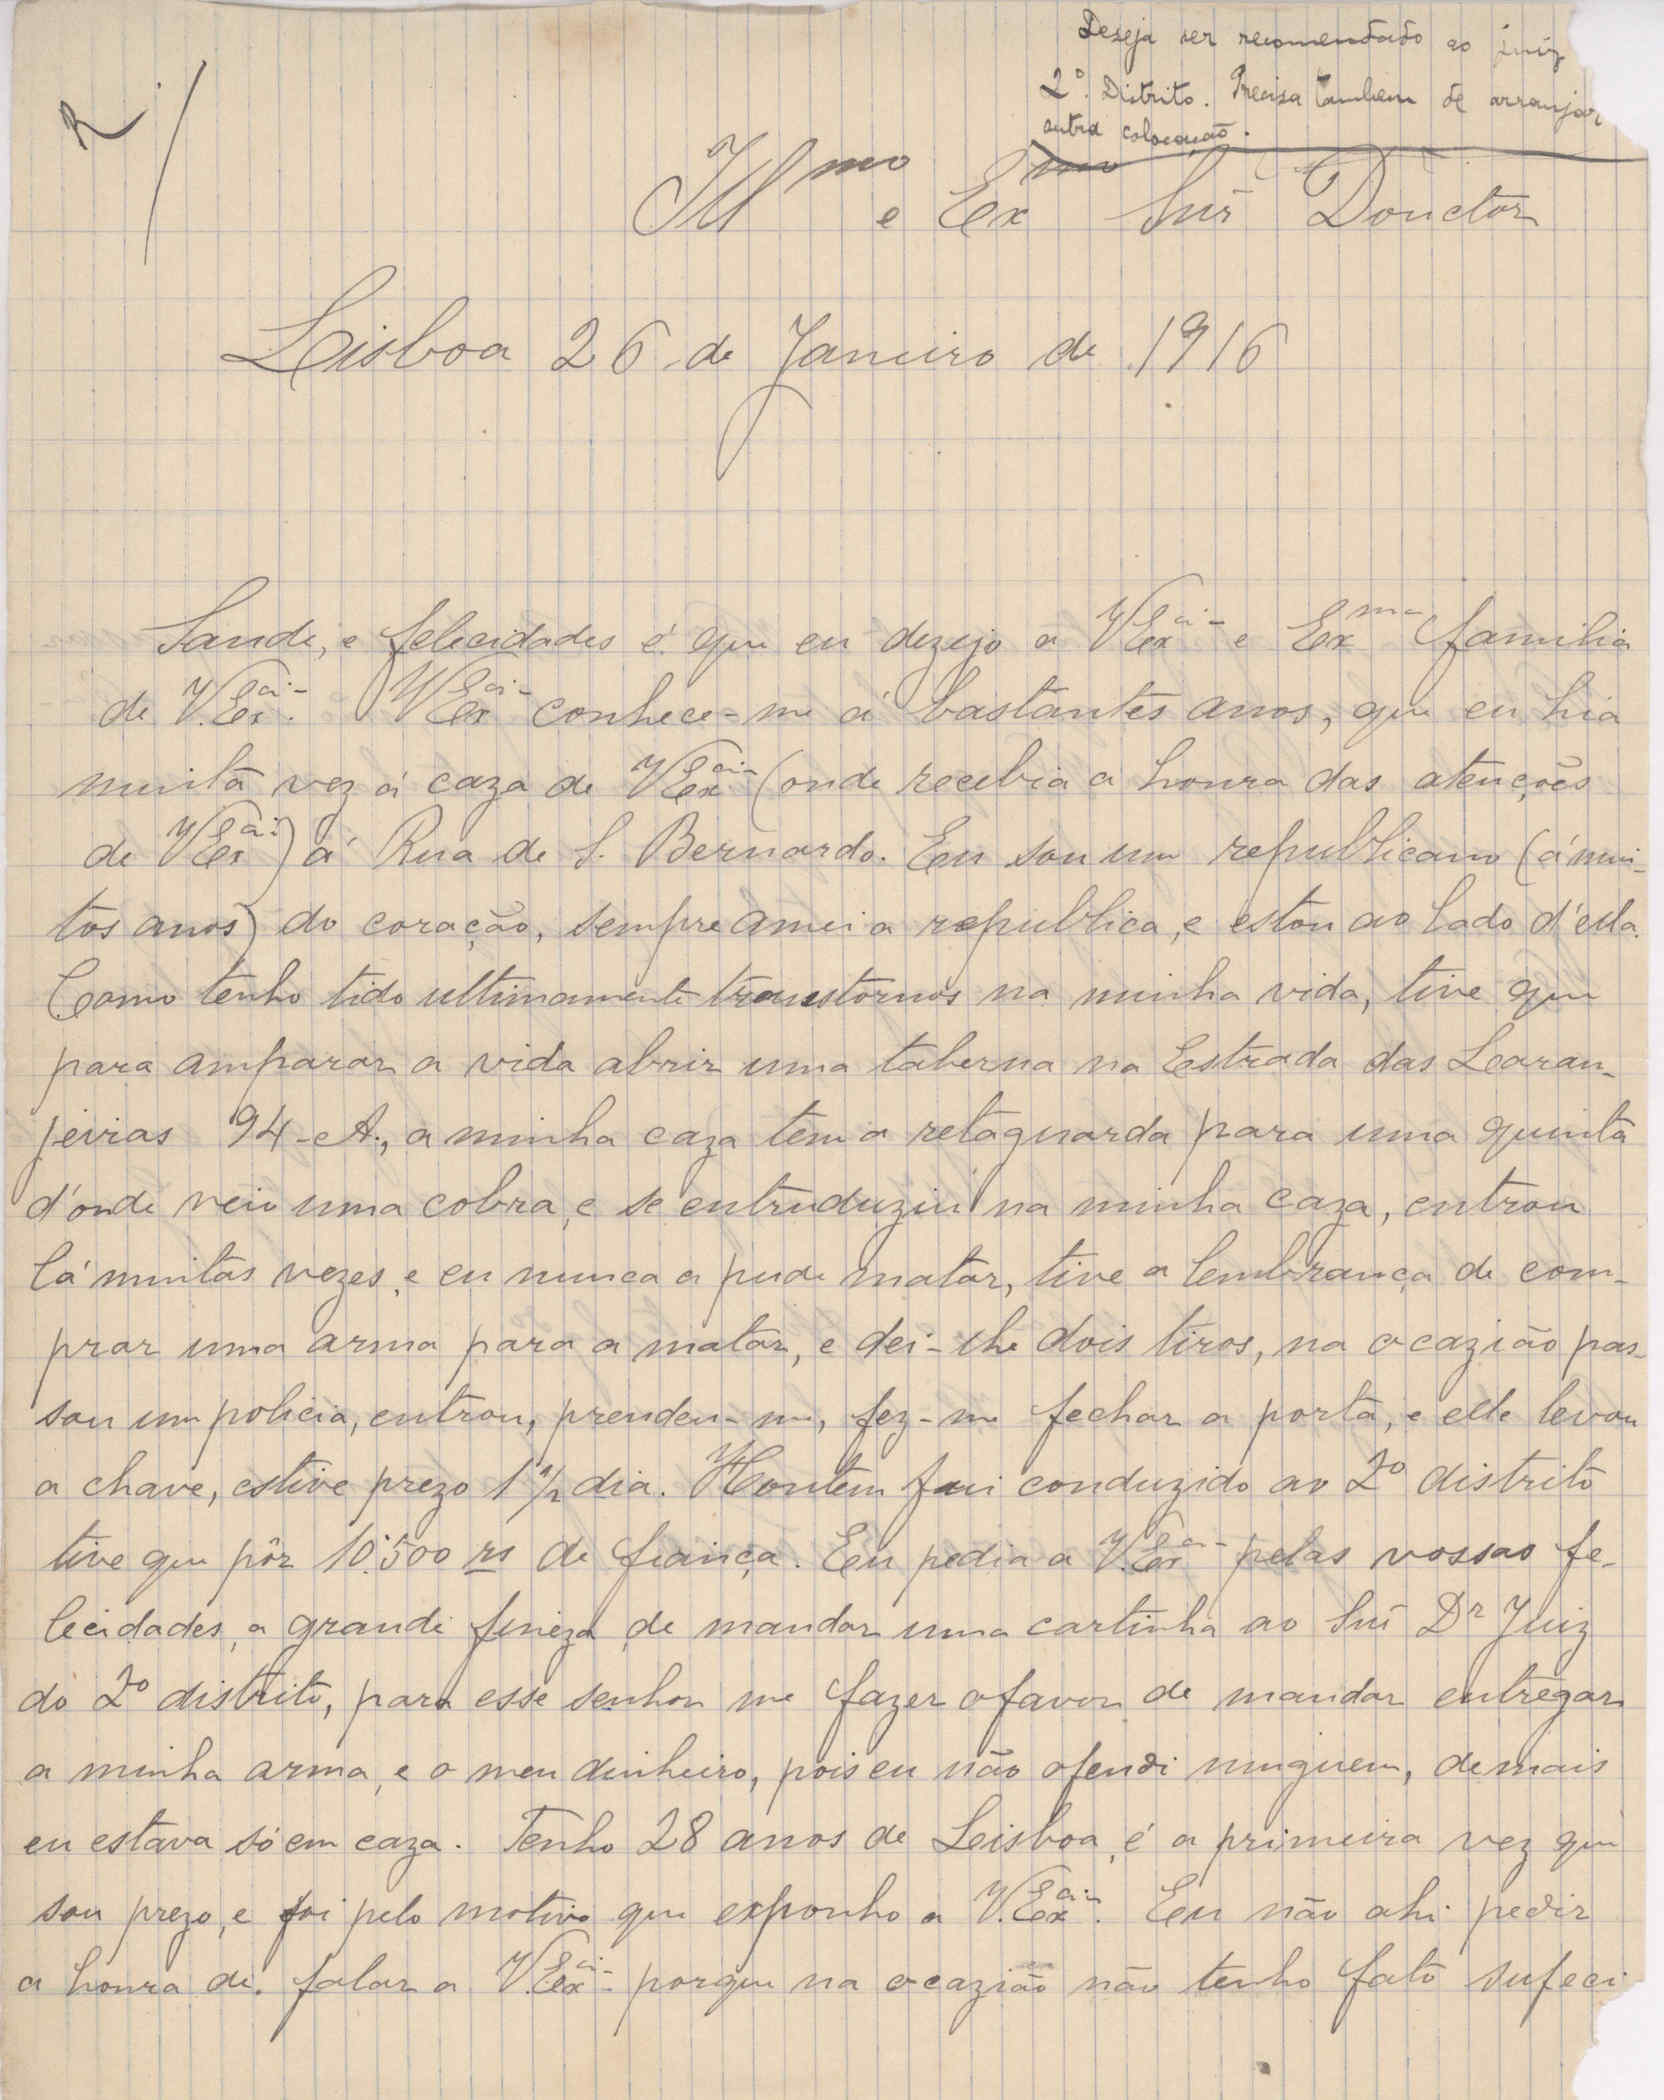 Deseja ser recomendado ao juiz
2º. Distrito. Precisa tambem de arranjar
outra colocação.
R
Illmo e Exmo Snr Douctor
Lisboa 26 de Janeiro de 1916
Saude, e felecidades é que eu dezejo a V Excia e Exma familia
de V. Excia. V Excia conhece-me á bastantes anos, que eu hia
muita vez á caza de V Excia (onde recebia a honra das atenções
de V Excia) á Rua de S. Bernardo. Eeu sou um republicano (á mui-
tos anos) do coração, sempre amei a republica, e estou ao lado d'ella.
Como tenho tido ultimamente transtornos na minha vida, tive que
para amparar a vida abrir uma taberna na Estrada das Laran-
jeiras 94-A., a minha caza tem a retaguarda para uma quinta
d'onde veio uma cobra, e se entruduziu na minha caza, entrou
lá muitas vezes, e eu nunca a pude matar, tive a lembrança de com-
prar uma arma para a matar, e dei-lhe dois tiros, na ocazião pas-
sou um policia, entrou, prendeu-me, fez-me fechar a porta, e elle levou
a chave, estive prezo 1 1/2 dia. Hontem fui conduzido ao 2º distrito
tive que pôr 10.500 rs de fiança. Eeu pedia a V. Excia pelas vossas fe-
lecidades, a grande fineza de mandar uma cartinha ao Snr Dr Juiz
do 2º distrito, para esse senhor me fazer o favor de mandar entregar
a minha arma, e o meu dinheiro, pois eu não ofendi ninguem, demais
eu estava só em caza. Tenho 28 anos de Leisboa, é a primeira vez que
sou prezo, e foi pelo motivo que exponho a V. Excia. Eeu não ahi pedir
a honra de falar a V. Excia porque na ocazião não tenho fato sufeci